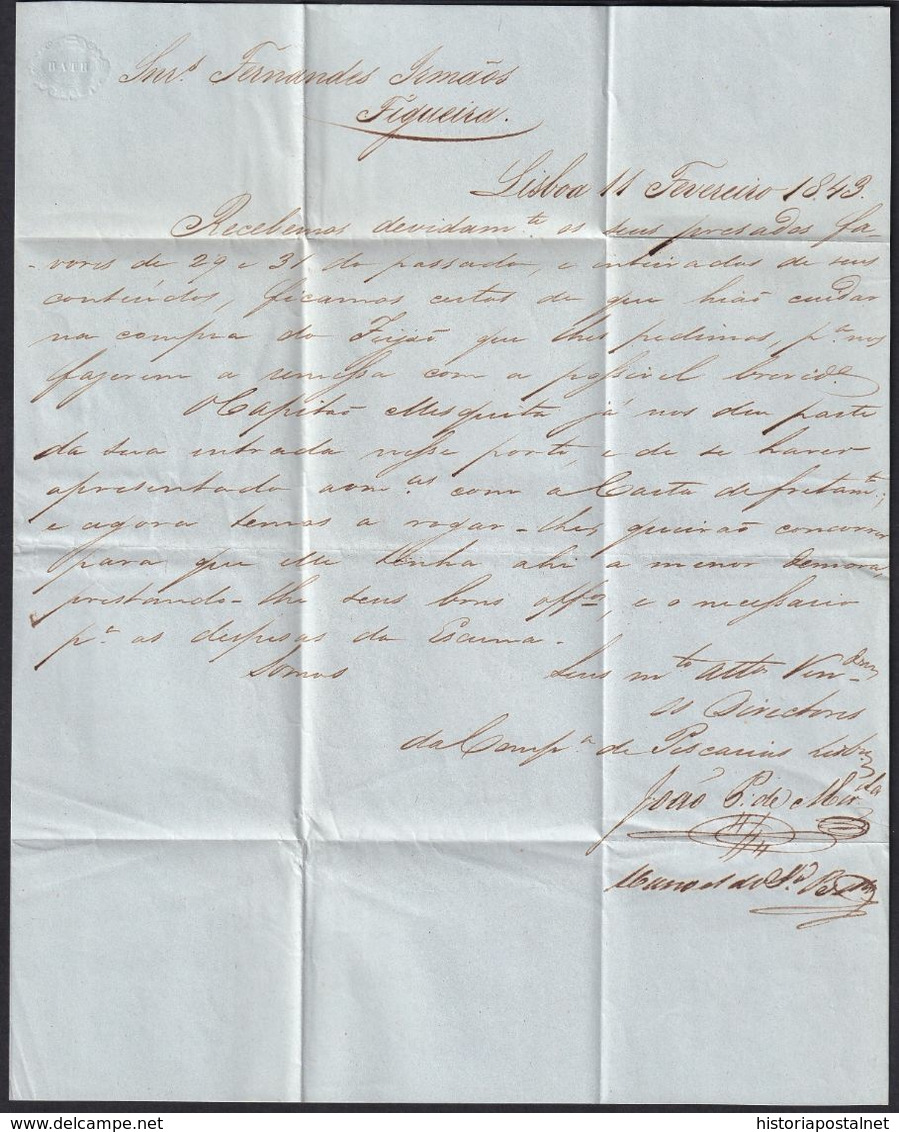 BATH
Snrs. Fernandes Irmãos
Figueira.
Lisboa 11 Fevereiro 1843.
Recebemos devidamte. os seus presados fa-
-vores de 29 e 31 do passado, e inteirados de seus
contiúdos, ficamos certos de que hião cuidar
na compra do Feijão que lhes pedimos, pa. nos
fazerem a remessa com a possivel brevide.
O Capitão Mesquita já nos deu parte
da sua entrada nesse porto, e de se haver
apresentado a vmcas. com a Carta de fretamte.;
e agora temos a rogar-lhes queirão concorrer
para que elle tenha ahi a menor demora,
prestando-lhe seus bons offos., e o necessario
pa. as despesas da Escuna.
Somos Seus mto. atto. Ven
os Directores
da Compa. de Pescarias Lisbo
João P. de Mir
Manoel
historiapostalnet